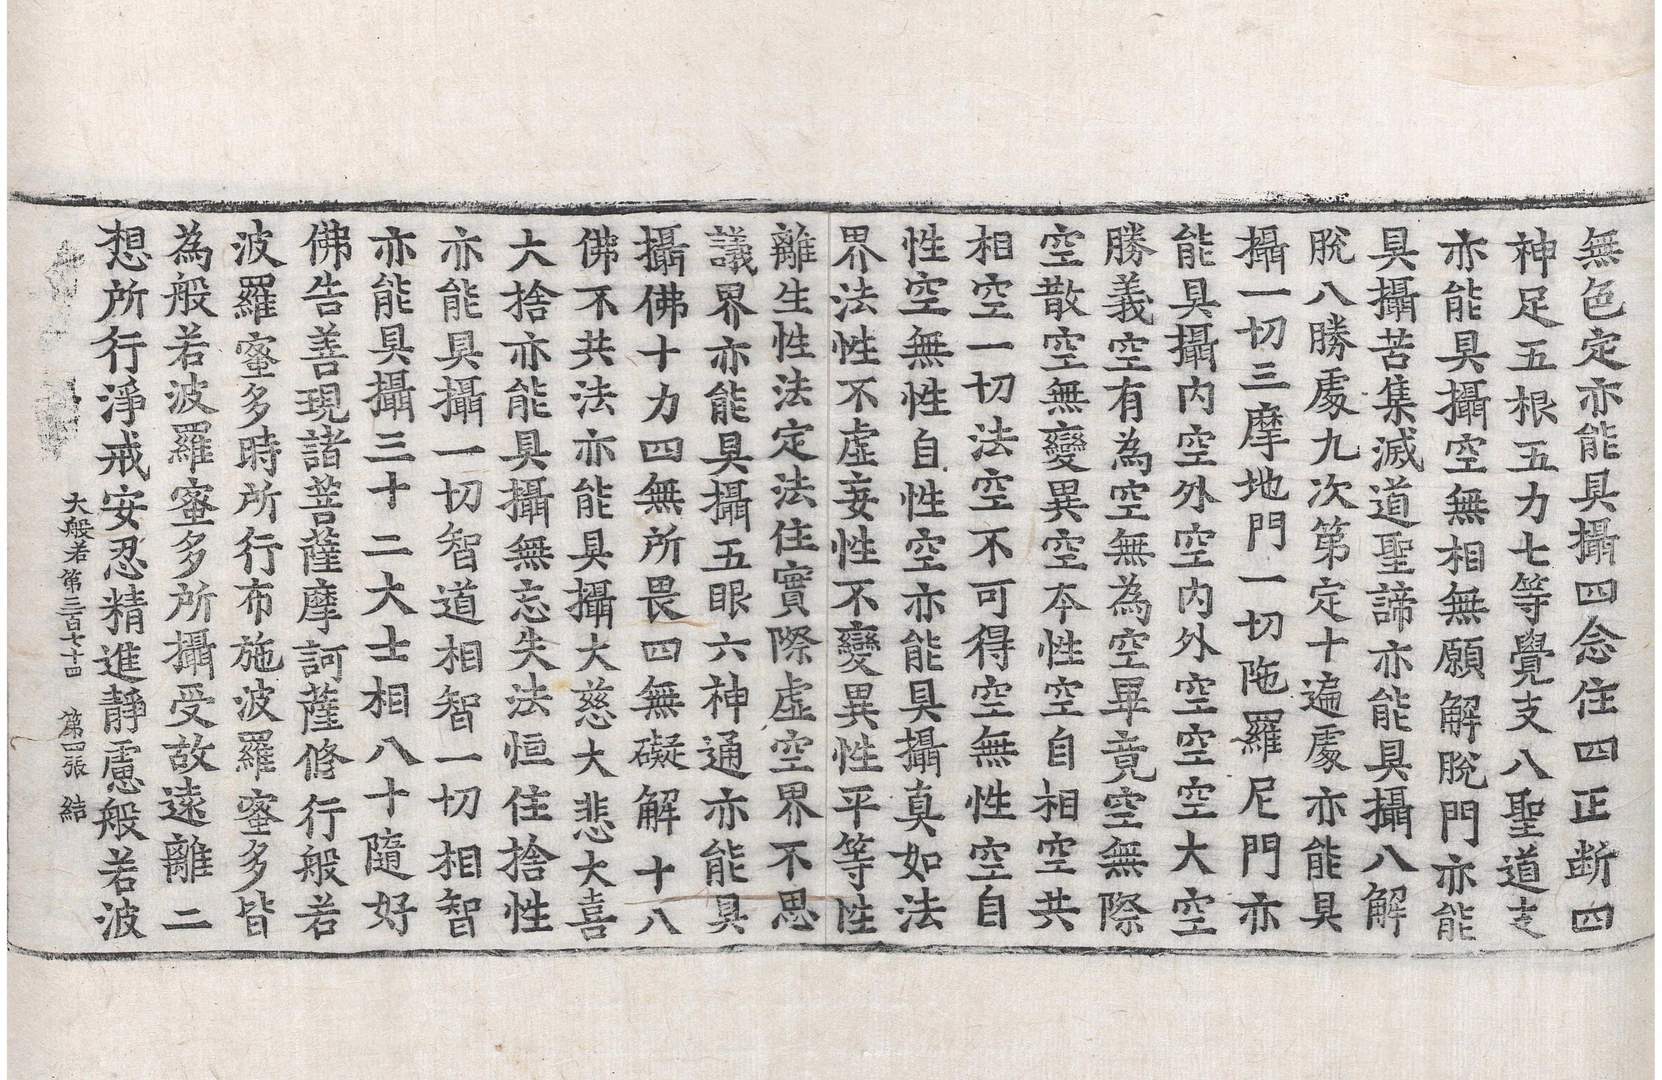 無色定亦能具攝四念住四正断四
神足五根五力七等覺支八聖道支
亦能具攝空無相無願解脫門亦能
具攝苦集滅道聖諦亦能具攝八解
脫八勝處九次第定十遍處亦能具
攝一切三摩地門一切陁羅尼門亦
能具攝内空外空内外空空空大空
勝義空有為空無為空畢竟空無際
空散空無變異空本性空自相空共
相空一切法空不可得空無性空自
性空無性自性空亦能具攝真如法
界法性不虛妄性不變異性平等性
離生性法定法住實際虛空界不思
議界亦能具攝五眼六神通亦能具
攝佛十力四無所畏四無礙解十八
佛不共法亦能具攝大慈大悲大喜
大捨亦能具攝無忘失法恒住捨性
亦能具攝一切智道相智一切相智
亦能具攝三十二大士相八十隨好
佛告善現諸菩薩摩訶薩修行般若
波羅蜜多時所行布施波羅蜜多皆
為般若波羅蜜多所攝受故遠離二
想所行淨戒安忍精進靜慮般若波
大般若第三百七十四 第四張 結